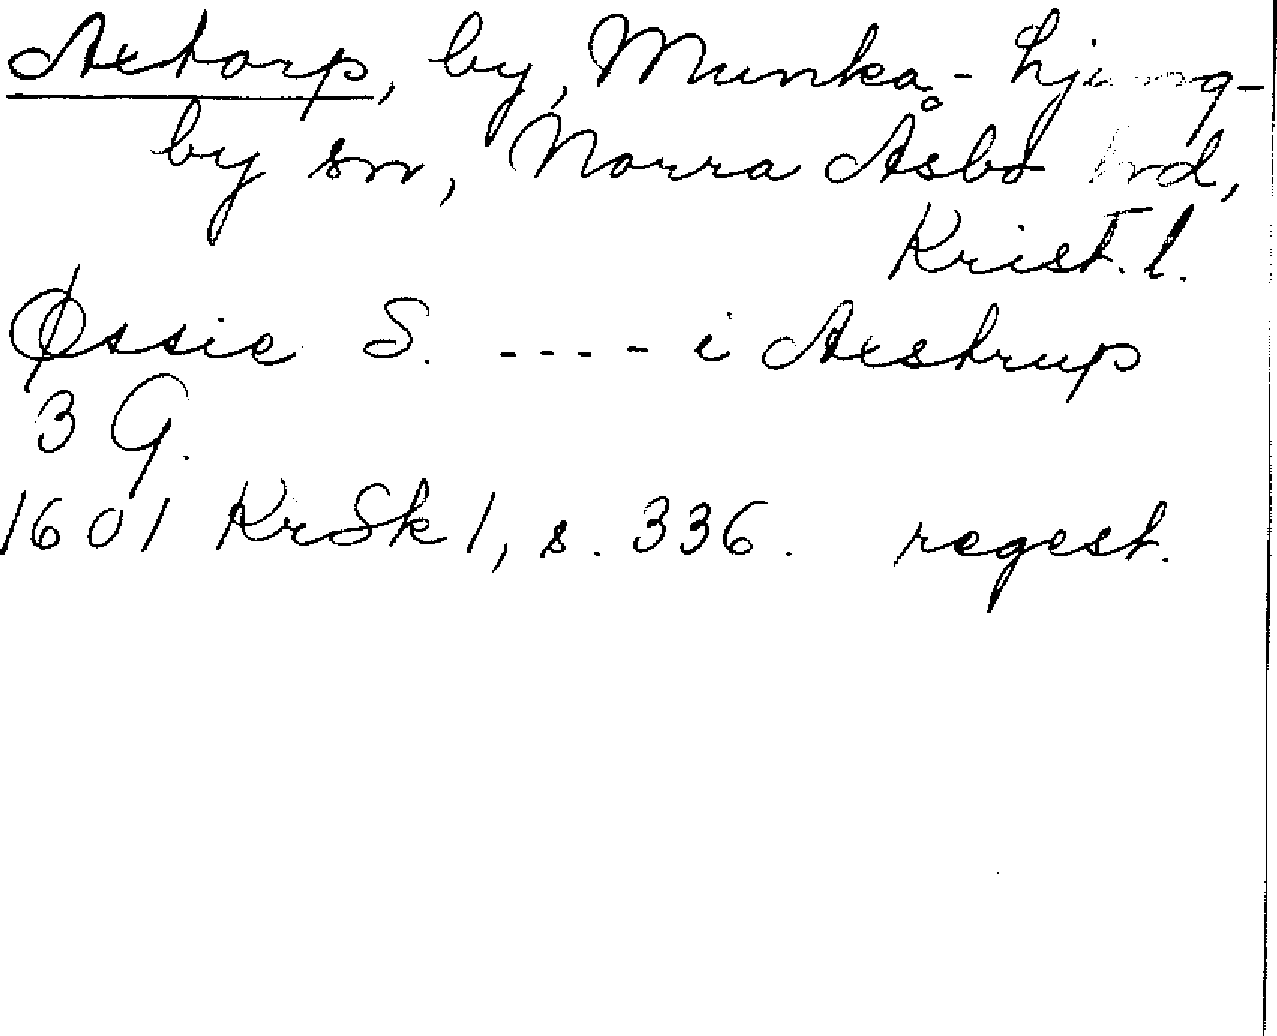 Axtorp, by, Munka-Ljung-
by sn, Norra Åsbo hrd,
Krist. l.
Øssie S. ---- i Axstrup
3 G.
1601 KrSk 1, s. 336. regest.